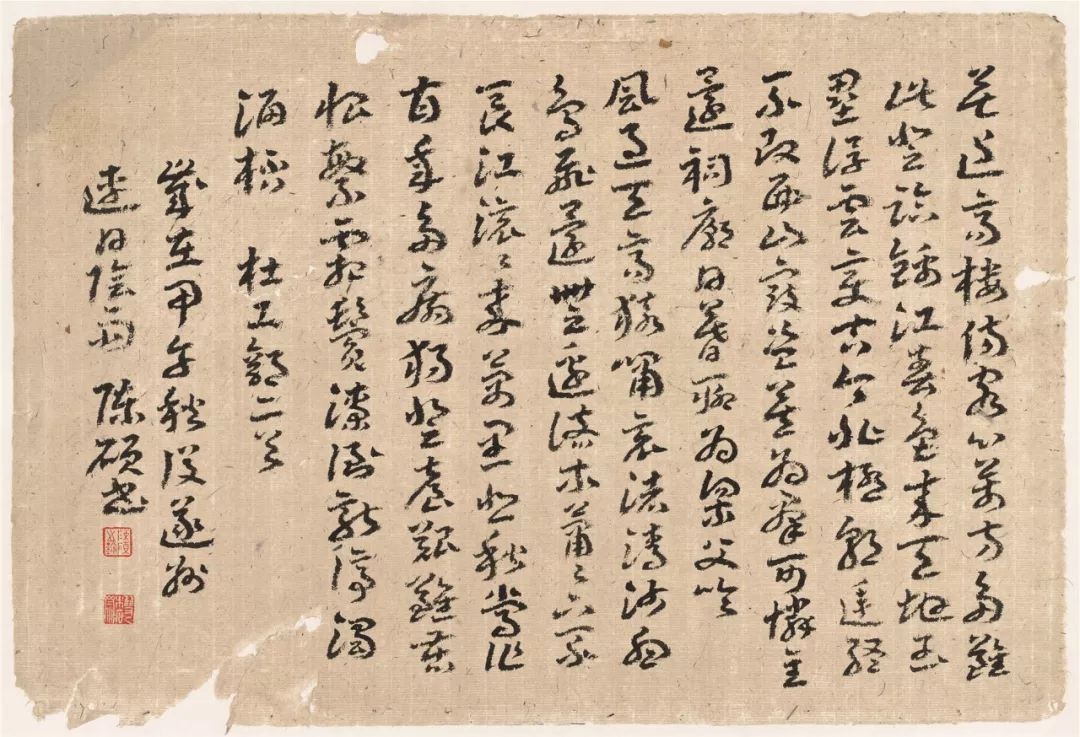 花近高樓傷客心萬方多難
此登臨錦江春色來天地玉
壘浮雲變古今北極朝廷終
不改西山寇盜莫相侵可憐主
還祠廟日暮聊為梁父吟
風急天高猿嘯哀渚清沙白
鳥飛還無邊落木蕭〻下不
長江滾〻來萬里悲秋常作
百年多病獨登臺艱難苦
恨繁霜鬢潦倒新停濁
酒杯 杜工部二首
歲在甲午秋後遂州
連日陰雨 陳碩書